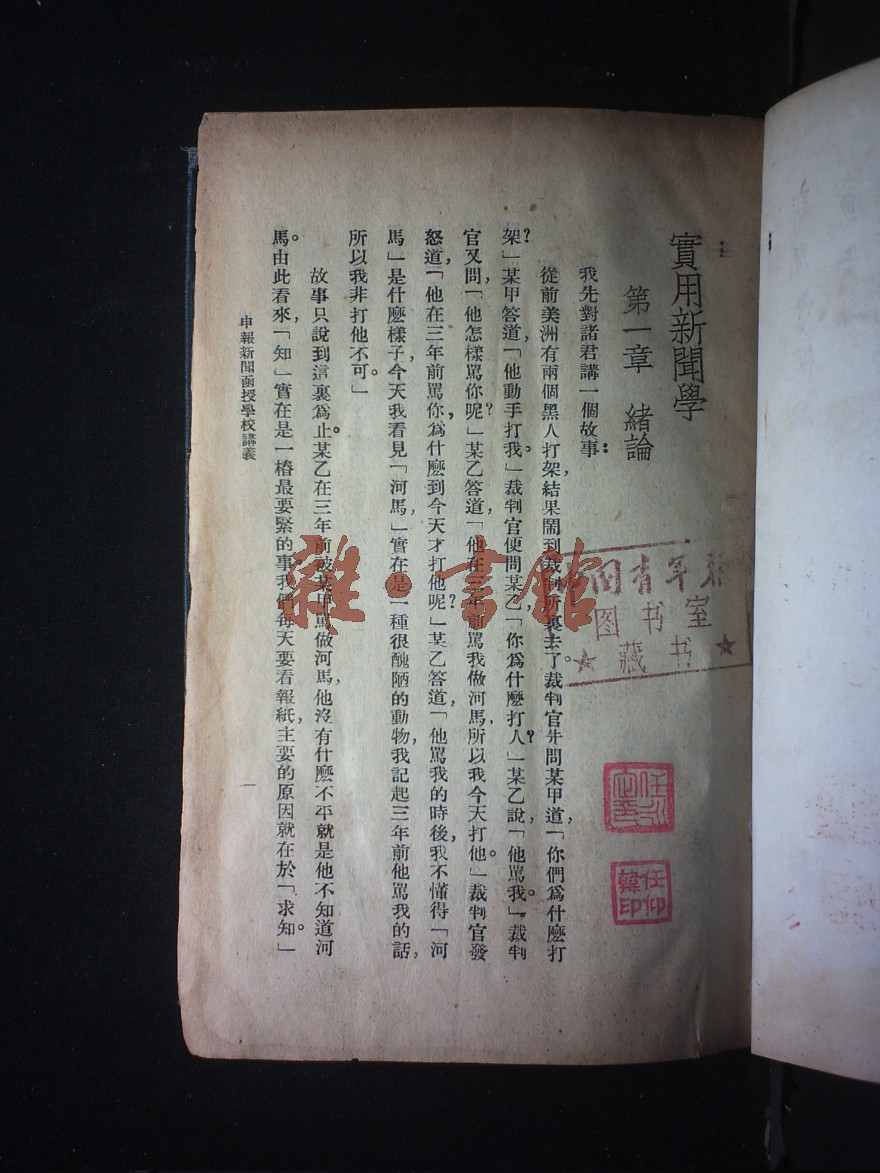 實用新聞學
第一章　緒論
我先對諸君講一個故事：
從前美洲有兩個黑人打架，結果鬧到裁判所裏去了。裁判官先問某甲道，「你們爲什麽打
架？」某甲答道，「他動手打我。」裁判官便問某乙，「你爲什麽打人？」某乙說，「他駡我。」裁判
官又問，「他怎樣駡你呢？」某乙答道，「他在三年前駡我做河馬，所以我今天打他。」裁判官發
怒道，「他在三年前駡你，爲什麽到今天才打他呢？」某乙答道，「他駡我的時後，我不懂得「河
馬」是什麽樣子，今天我看見「河馬，」實在是一種很醜陋的動物，我記起三年前他駡我的話，
所以我非打他不可。」
故事只說到這裏爲止。某乙在三年前被某甲駡做河馬，他沒有什麽不平，就是他不知道河
馬。由此看來，「知」實在是一樁最要緊的事，我們每天要看報紙，主要的原因就在於「求知。」
申報新聞函授學校講義
一
雜·書館
中國青年報
图书室
藏书
任仰
韓印